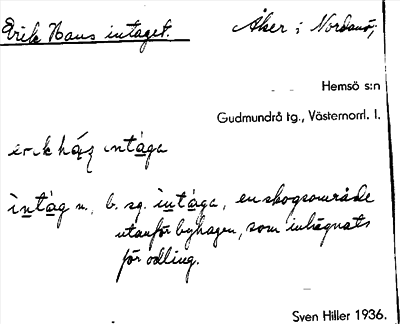 Erik Hans intaget. Åker i Nordanö;
Hemsö s:n
Gudmundrå tg., Västernorrl. l.
erɩk hąz ɩntåga
ìntåg n., b. sg. ìntåga, en skogsområde
utanför byhagen, som inhägnats
för odling.
Sven Hiller 1936.